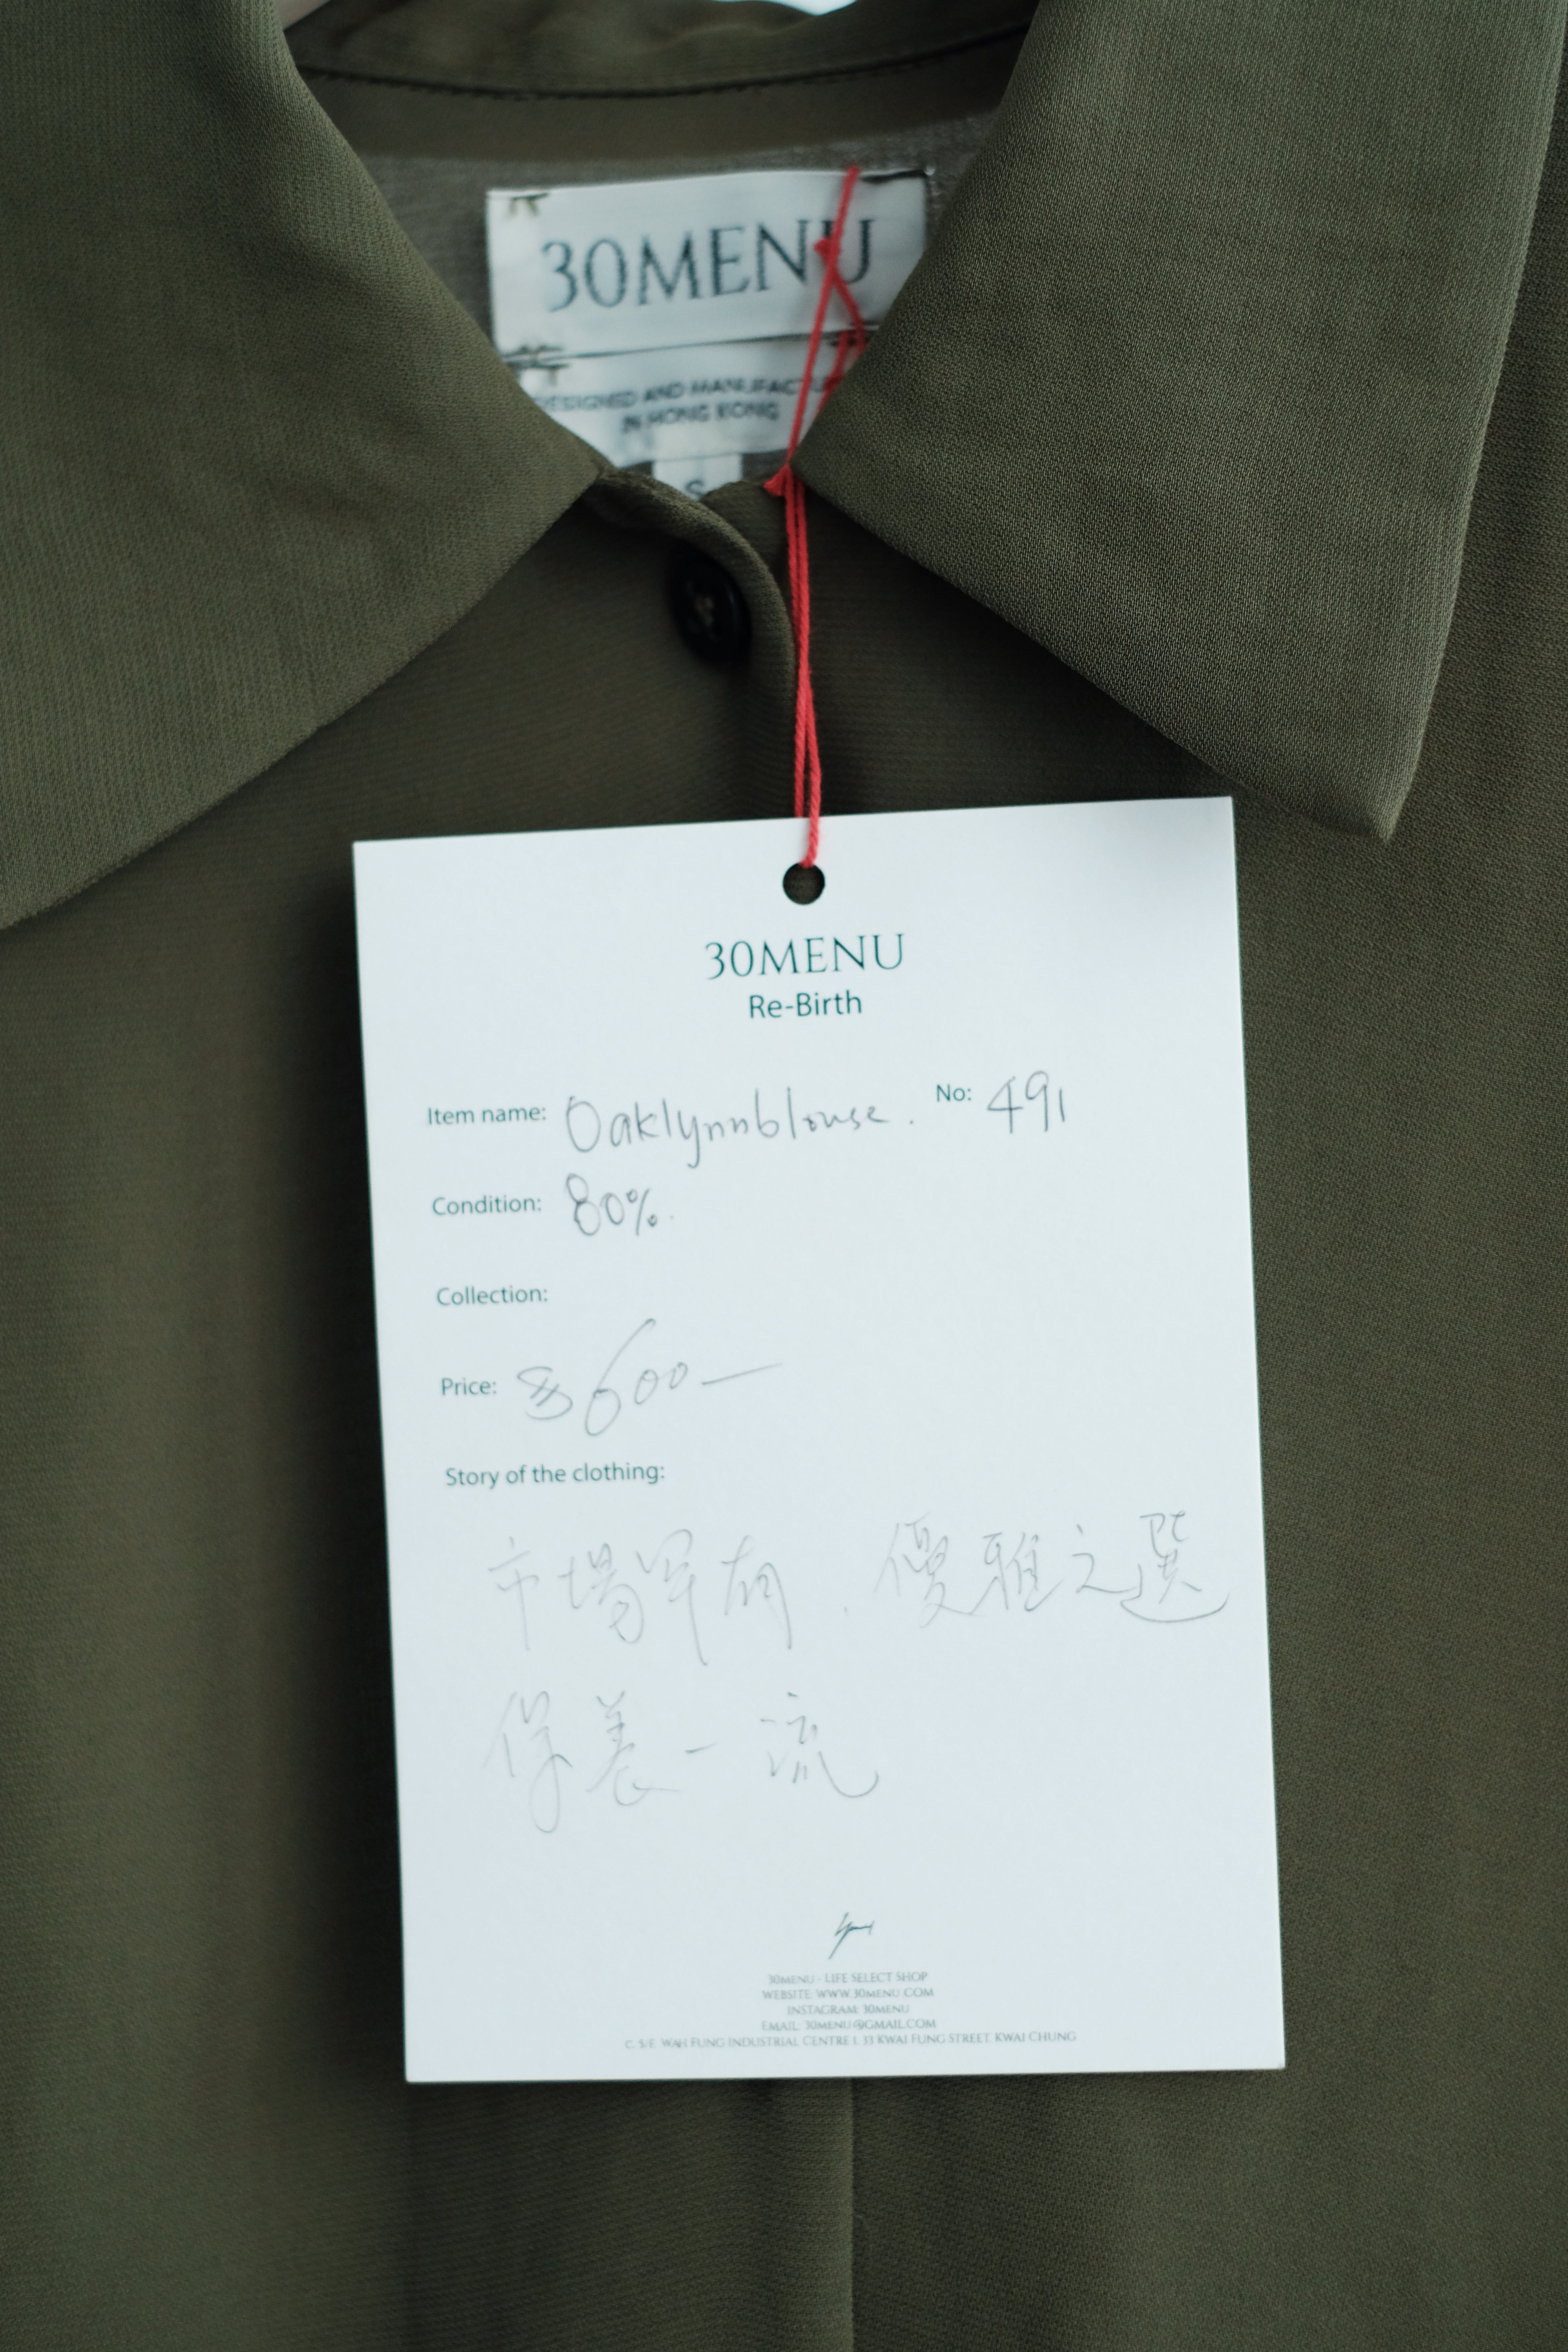 30MENU
DESIGNED AND MANUFACTU
IN HONG KONG
S
30MENU
Re-Birth
Item name: Oaklynnblouse. No: 491
Condition: 80%.
Collection:
Price: $600—
Story of the clothing:
市場罕有.優雅之選
保養一流
30MENU - LIFE SELECT SHOP
WEBSITE: WWW.30MENU.COM
INSTAGRAM: 30MENU
EMAIL: 30MENU@GMAIL.COM
C, 5/F, WAH FUNG INDUSTRIAL CENTRE I, 33 KWAI FUNG STREET, KWAI CHUNG